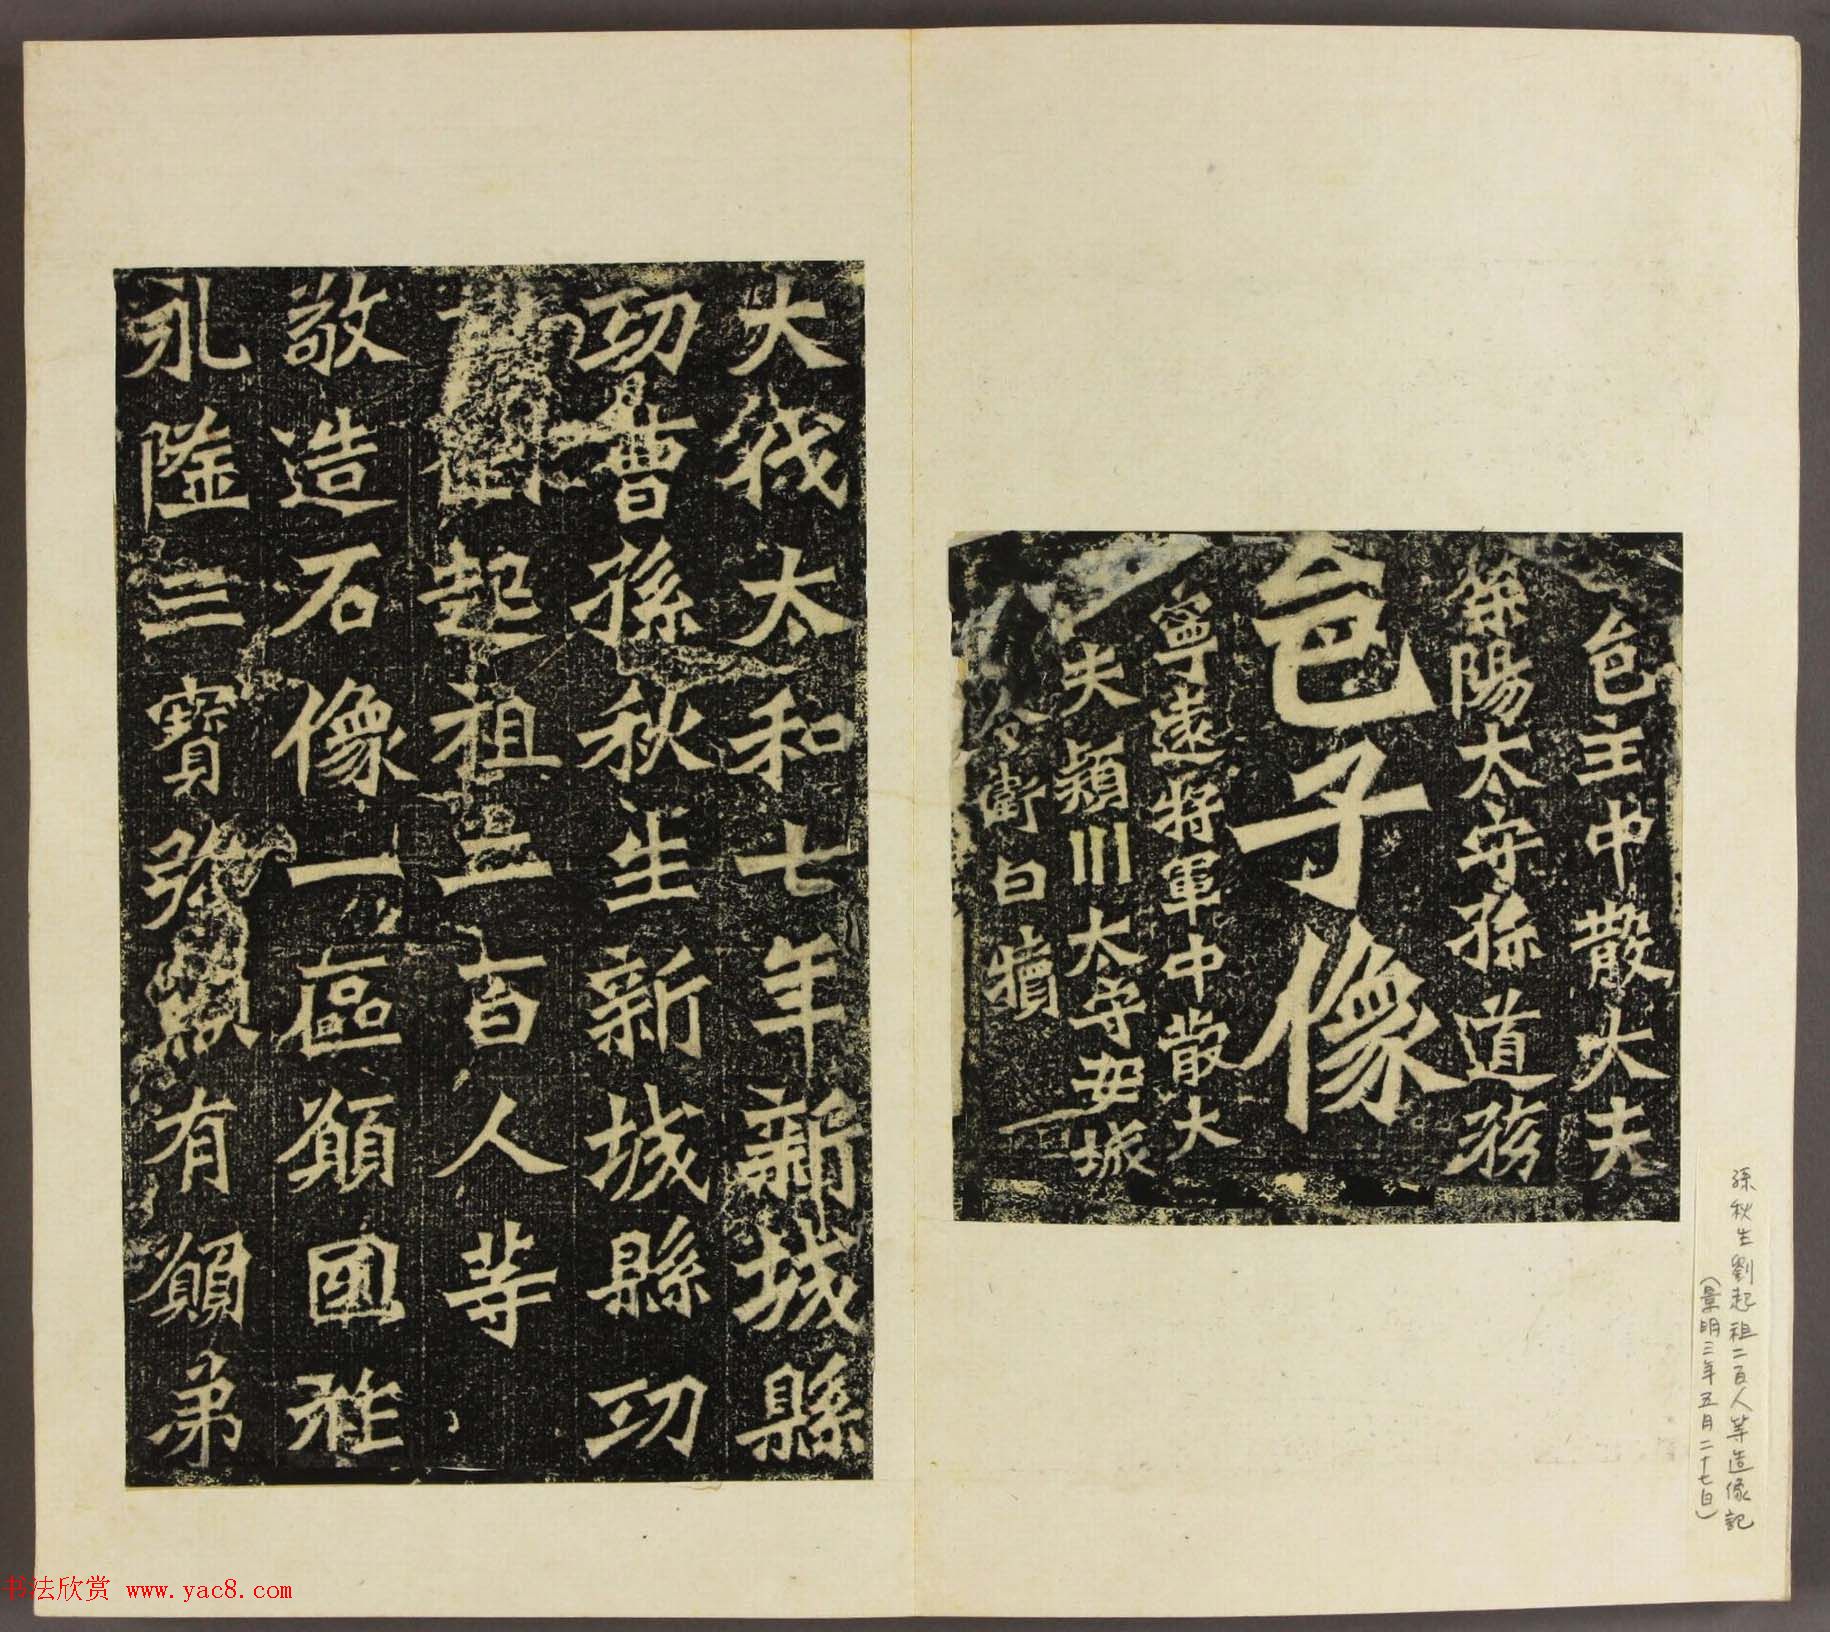 邑主中散大夫
滎陽太守孫道務
邑子像
寧遠將軍中散大
夫潁川太守安城
令衛白犢
孫秋生劉起祖二百人等造像記
(景明三年五月二十七日)
大伐太和七年新城縣
功曹孫秋生新城縣功
起祖二百人等
敬造石像一區願國祚
永隆三寶弥顯有願弟
书法欣赏 www.yac8.com